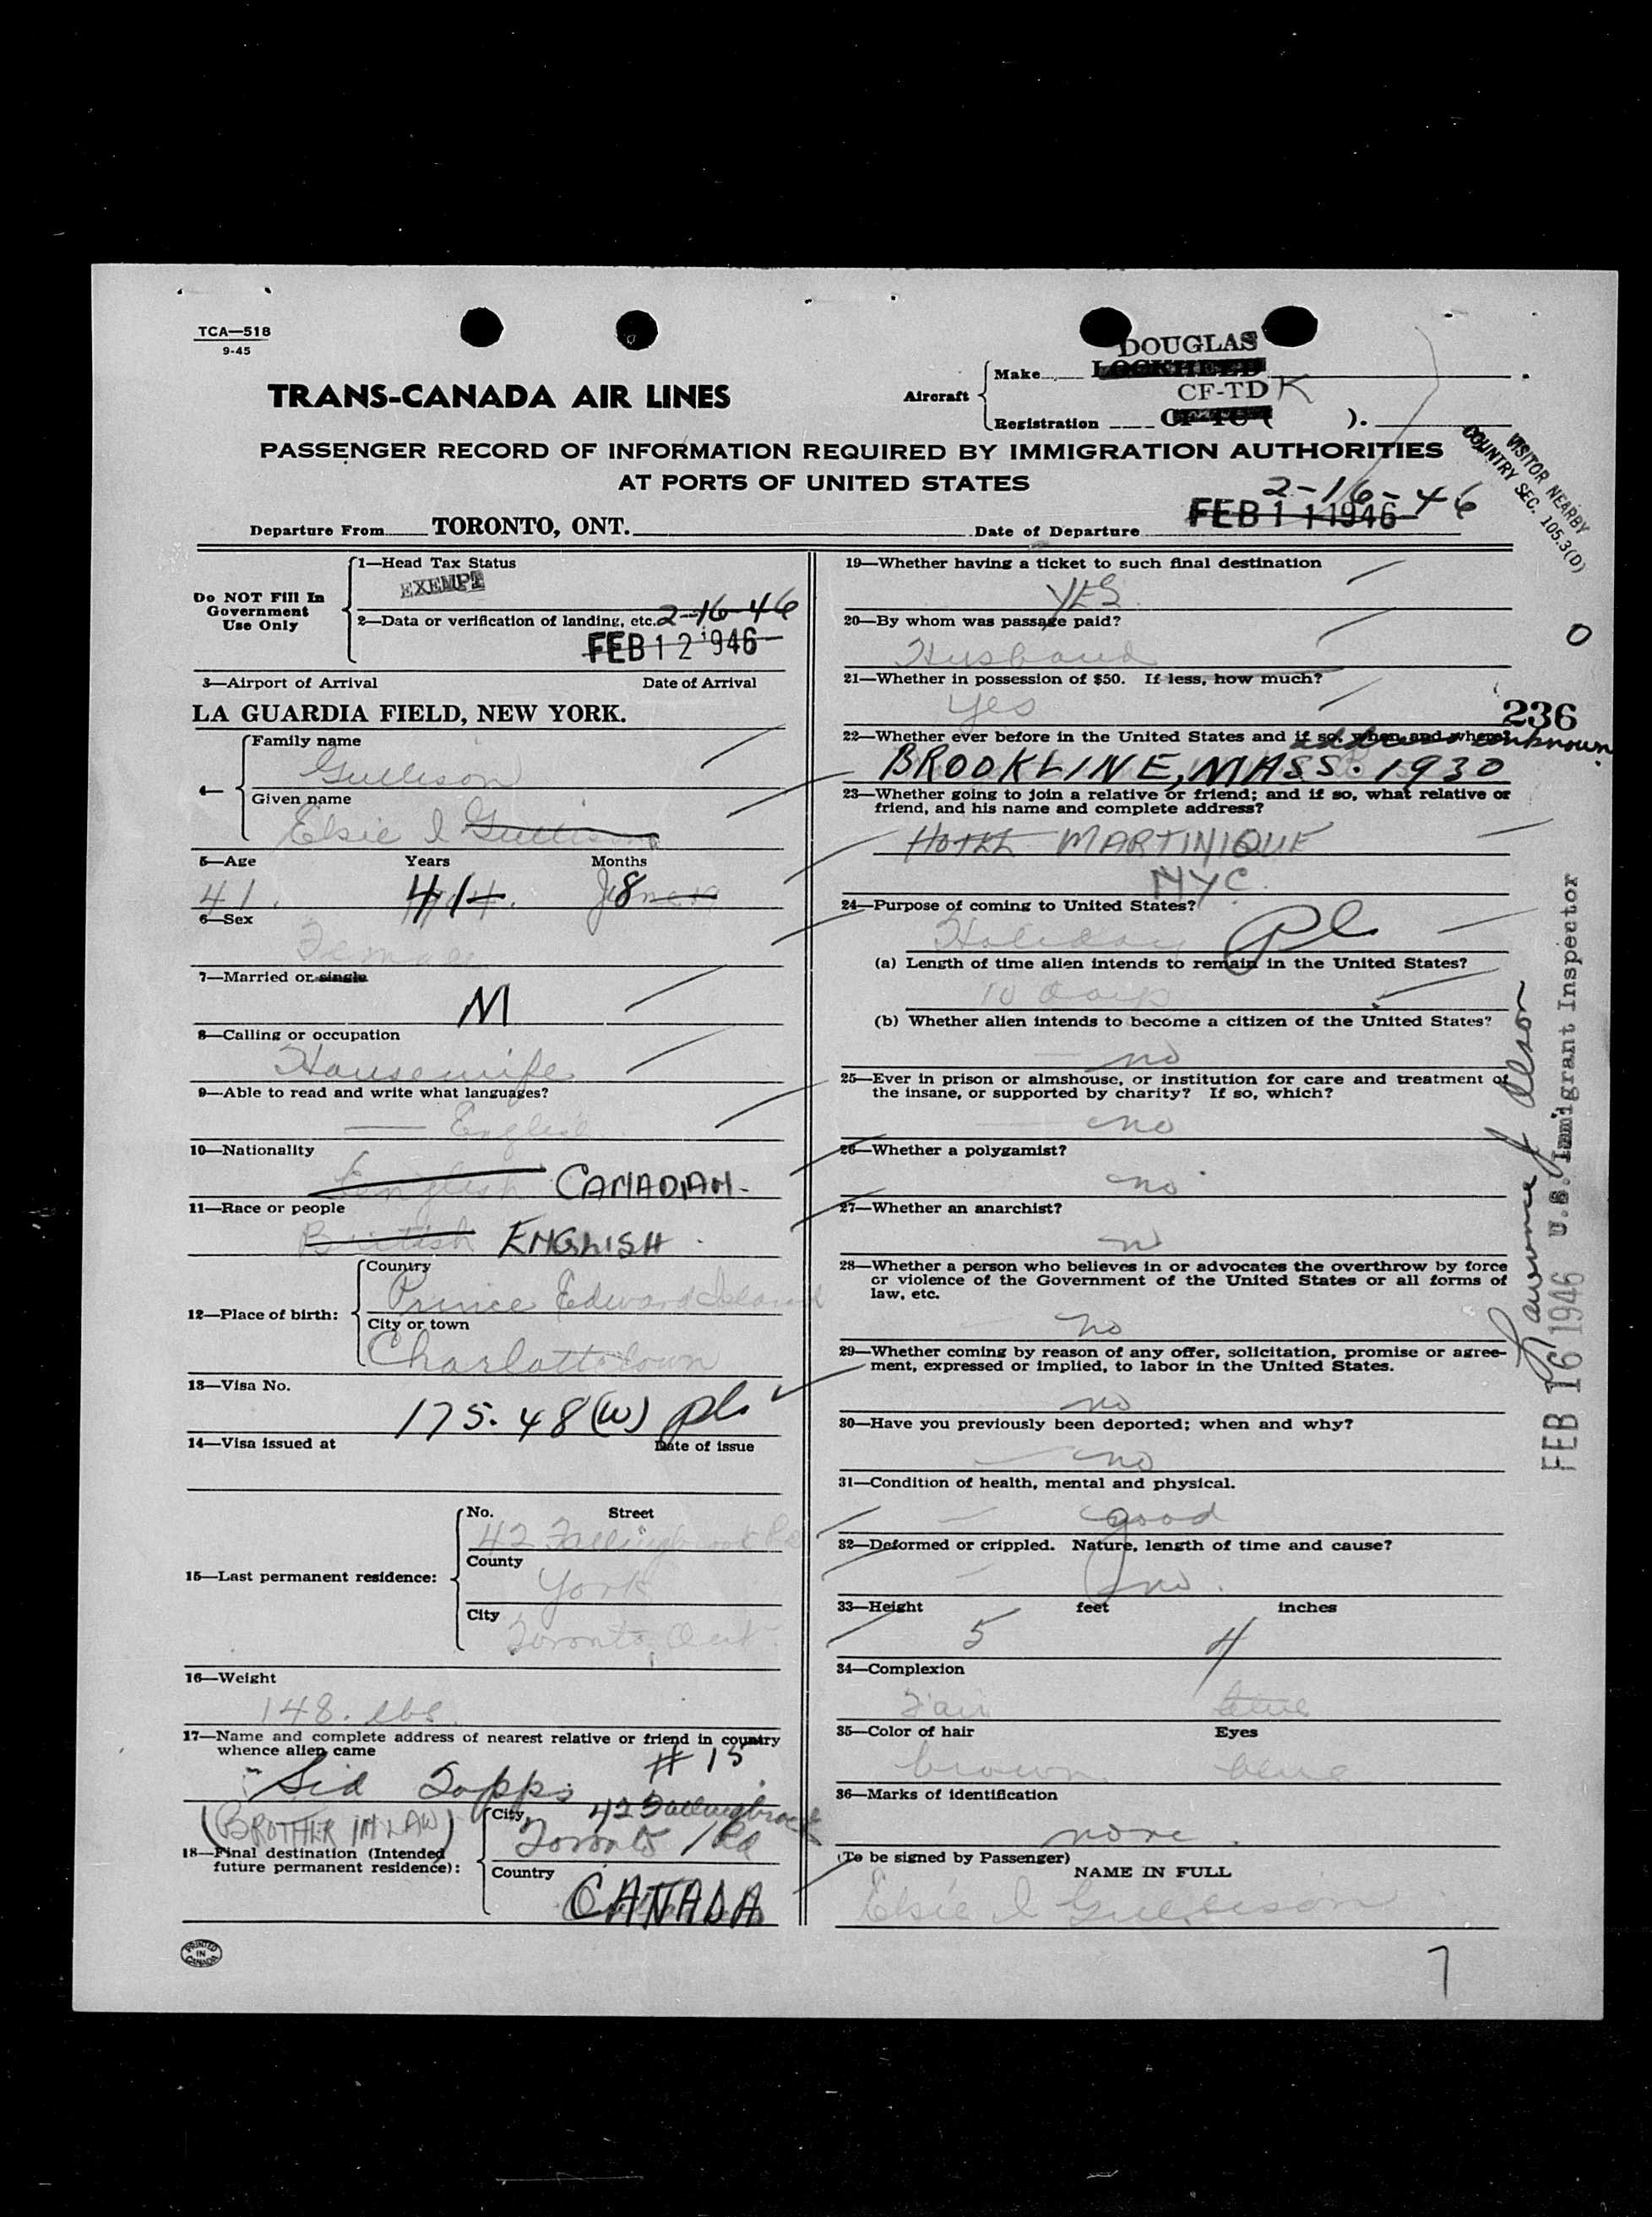 TCA—518
9-45
TRANS-CANADA AIR LINES
Aircraft
Make
DOUGLAS
LOCKHEED
Registration
CF-TDK
).
PASSENGER RECORD OF INFORMATION REQUIRED BY IMMIGRATION AUTHORITIES
AT PORTS OF UNITED STATES
VISITOR NEARBY
COUNTRY SEC. 105.3(D)
2-16-46
Departure From TORONTO, ONT. Date of Departure FEB 11 1946
Do NOT Fill In
Government
Use Only
1—Head Tax Status
EXEMPT
2—Data or verification of landing, etc. 2-16-46
FEB 12 1946
3—Airport of Arrival Date of Arrival
LA GUARDIA FIELD, NEW YORK.
4—
Family name
Gullison
Given name
Elsie I Gullison
5—Age Years Months
41. 41 8
6—Sex
Female
7—Married or single
M
8—Calling or occupation
Housewife
9—Able to read and write what languages?
— English
10—Nationality
English CANADIAN-
11—Race or people
British ENGLISH.
12—Place of birth:
Country
Prince Edward Island
City or town
Charlottetown
13—Visa No.
175.48(W)
14—Visa issued at Date of issue
15—Last permanent residence:
No. Street
42 Fallingbrook Rd
County
York
City
Toronto, Ont.
16—Weight
148. lbs.
17—Name and complete address of nearest relative or friend in country
whence alien came
# 15
Sid Topps
(BROTHER IN LAW)
42 Fallingbrook
Rd
18—Final destination (Intended
future permanent residence):
City
Toronto
Country
CANADA
PRINTED
IN
CANADA
19—Whether having a ticket to such final destination
YES
20—By whom was passage paid?
Husband
O
21—Whether in possession of $50. If less, how much?
Yes
236
22—Whether ever before in the United States and if so, when and where?
address unknown.
BROOKLINE, MASS. 1930
23—Whether going to join a relative or friend; and if so, what relative or
friend, and his name and complete address?
HOTEL MARTINIQUE
NYC.
24—Purpose of coming to United States?
Holiday
(a) Length of time alien intends to remain in the United States?
10 days
(b) Whether alien intends to become a citizen of the United States?
— no
25—Ever in prison or almshouse, or institution for care and treatment of
the insane, or supported by charity? If so, which?
— no
26—Whether a polygamist?
no
27—Whether an anarchist?
no
28—Whether a person who believes in or advocates the overthrow by force
or violence of the Government of the United States or all forms of
law, etc.
no
29—Whether coming by reason of any offer, solicitation, promise or agree-
ment, expressed or implied, to labor in the United States.
no
30—Have you previously been deported; when and why?
— no
31—Condition of health, mental and physical.
— good
32—Deformed or crippled. Nature, length of time and cause?
— no.
33—Height feet inches
5 4
34—Complexion
Fair blue
35—Color of hair Eyes
brown blue
36—Marks of identification
none.
(To be signed by Passenger)
NAME IN FULL
Elsie I Gullison
FEB 16 1946 U.S. Immigrant Inspector
7